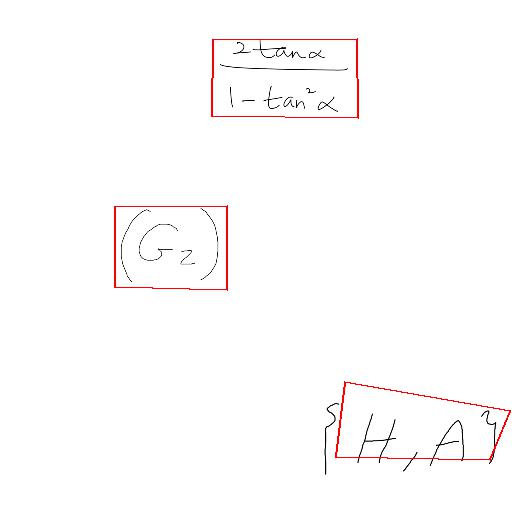 \frac{2\tan\alpha}{1-\tan^2\alpha}
(G_2)
\{H,A\}